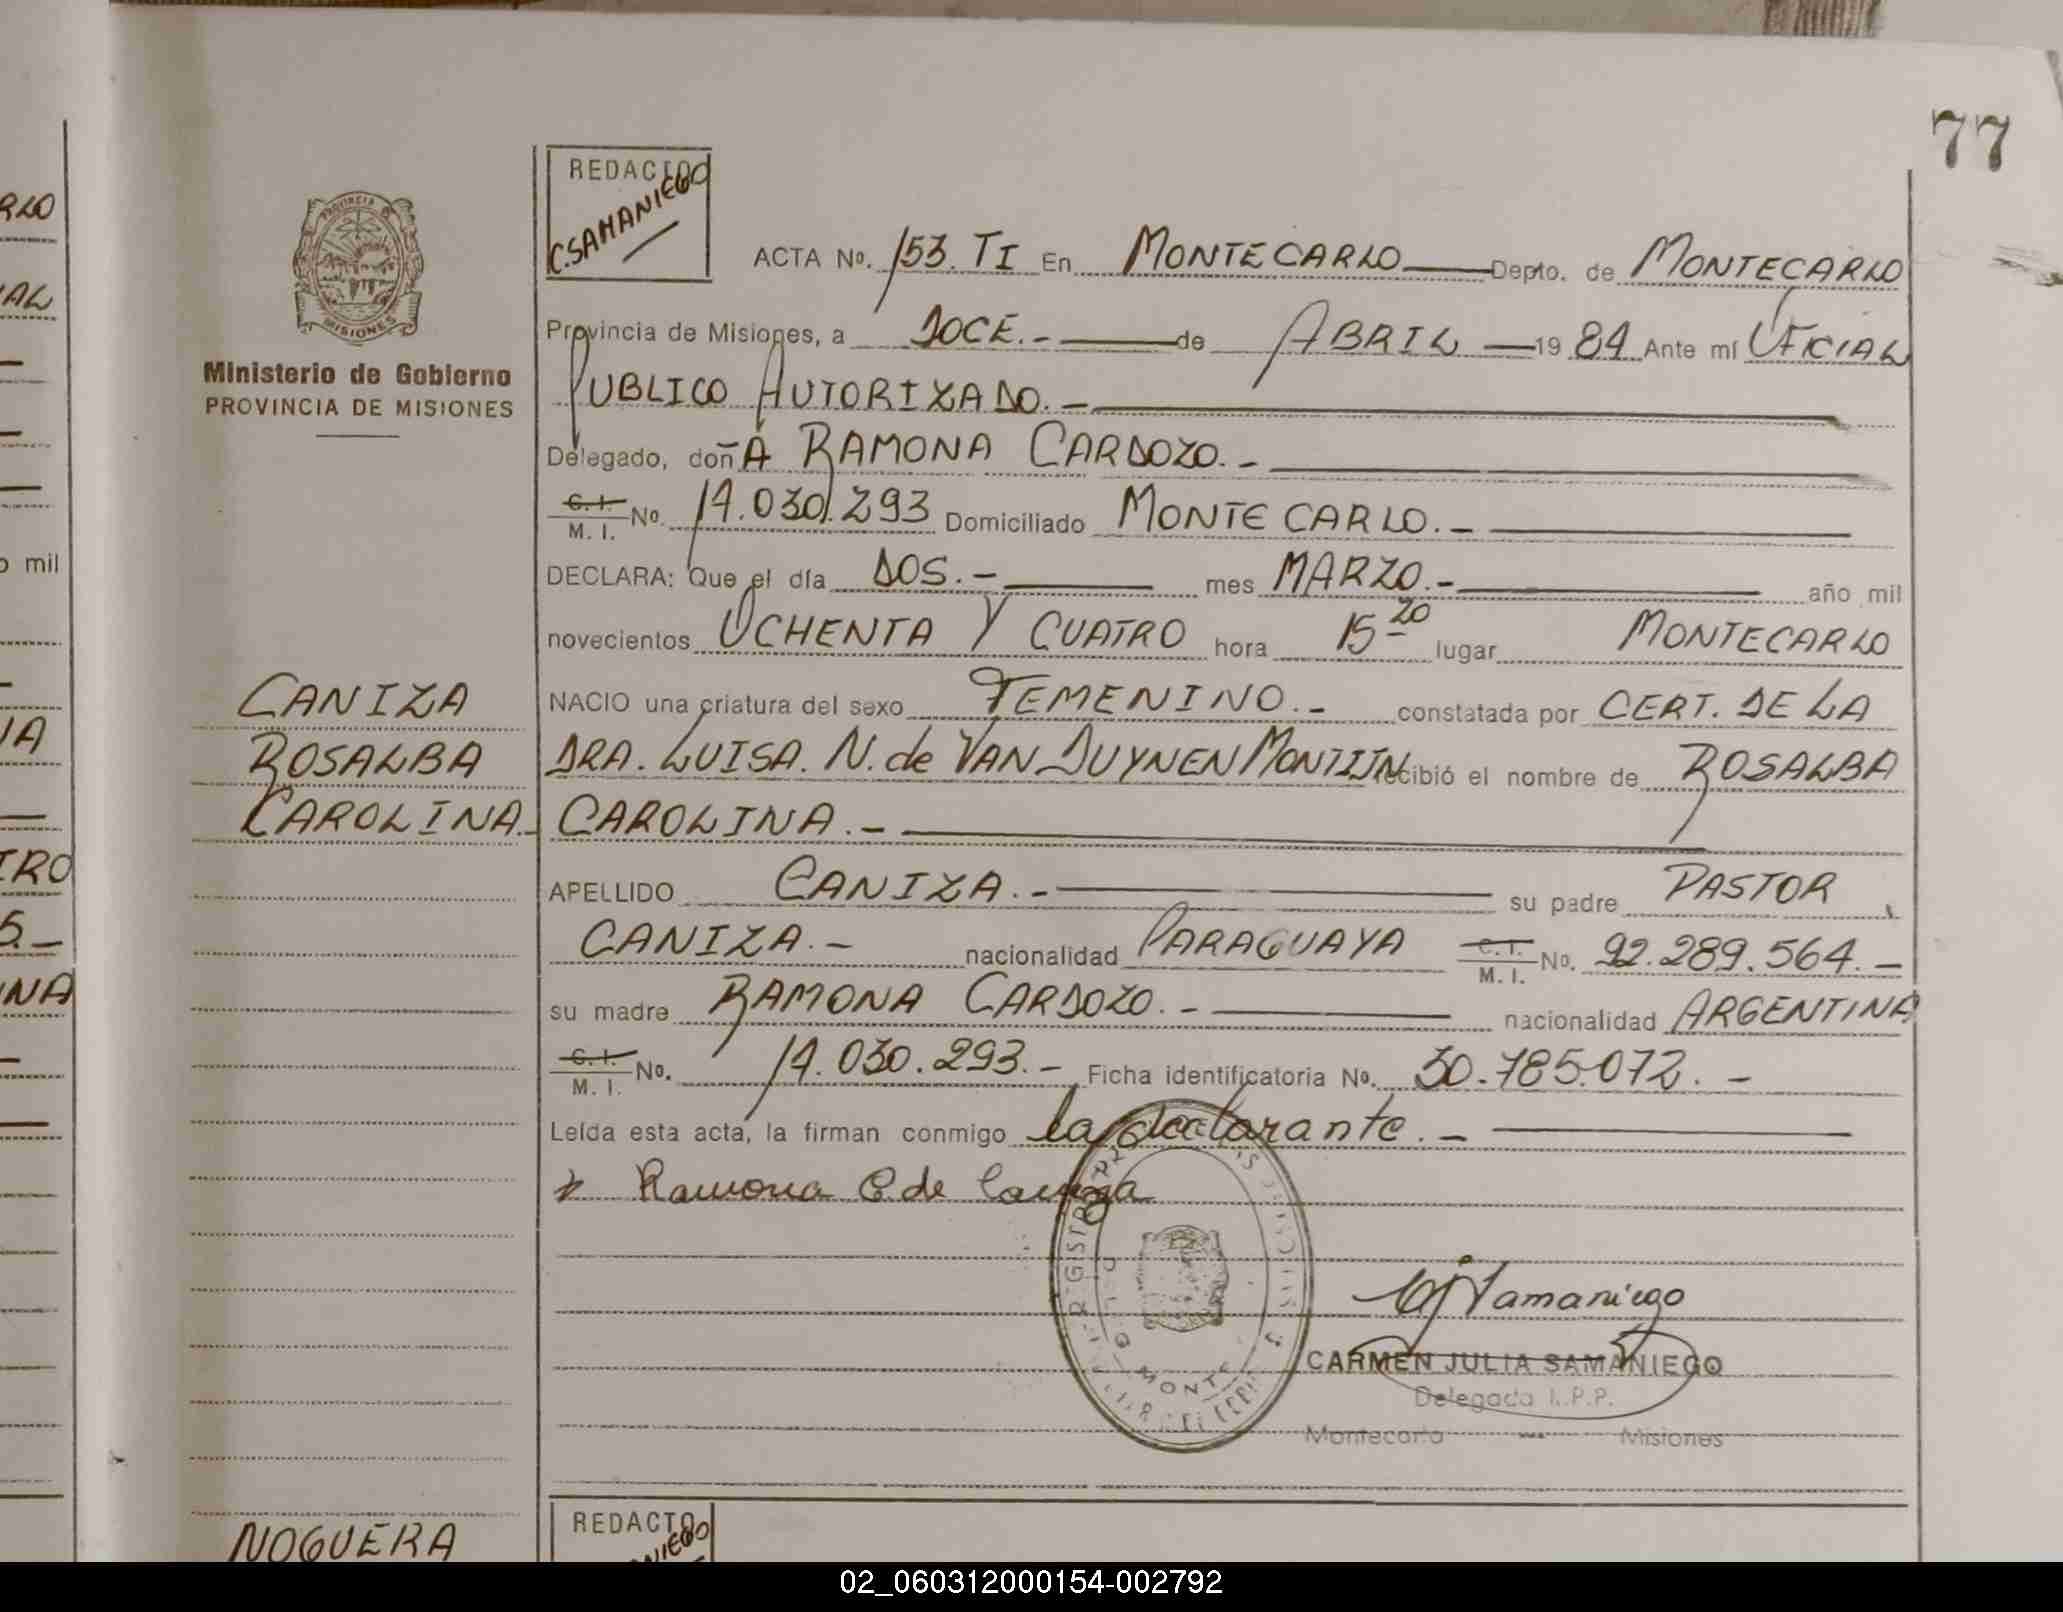 77
REDACTO
C. SAMANIEGO
PROVINCIA DE
MISIONES
Ministerio de Gobierno
PROVINCIA DE MISIONES
ACTA No. 153. TI En MONTECARLO Depto. de MONTECARLO
Provincia de Misiones, a DOCE.- de ABRIL 19 84 Ante mí OFICIAL
PUBLICO AUTORIZADO.-
Delegado, doñA RAMONA CARDOZO.-
C. I. / M. I. No. 14.030.293 Domiciliado MONTECARLO.-
DECLARA: Que el día DOS.- mes MARZO.- año mil
novecientos OCHENTA Y CUATRO hora 15 20 lugar MONTECARLO
NACIO una criatura del sexo FEMENINO.- constatada por CERT. DE LA
DRA. LUISA. N. de VAN DUYNEN MONTIJN recibió el nombre de ROSALBA
CAROLINA.-
CANIZA
ROSALBA
CAROLINA.-
APELLIDO CANIZA.- su padre PASTOR
CANIZA.- nacionalidad PARAGUAYA C. I. / M. I. No. 92.289.564.-
su madre RAMONA CARDOZO.- nacionalidad ARGENTINA
C. I. / M. I. No. 14.030.293.- Ficha identificatoria No. 30.785.072.-
Leída esta acta, la firman conmigo la declarante.-
Ramona C de Caniza
CJSamaniego
CARMEN JULIA SAMANIEGO
Delegada I.P.P.
Montecarlo - Misiones
REDACTO
NOGUERA
02_060312000154-002792